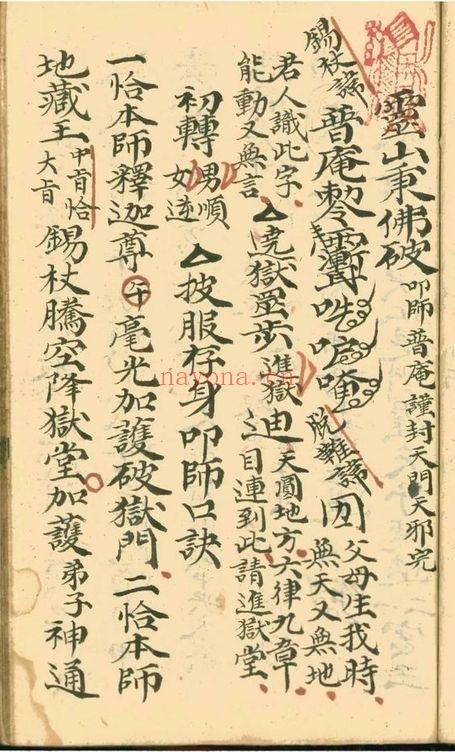 靈山秉佛破
叩師普庵謹封天門天邪完
錫杖諱
普庵
脫離諱
父母生我時
無天又無地
君人識此字
能動又無言
△遶獄罡步進獄
迪
天圓地方六律九章
目連到此請進獄堂
初轉
男順
女逆
△披服存身叩師口訣
一恰本師釋迦尊午毫光加護破獄門二恰本師
地藏王
中旨恰
大旨
錫杖騰空降獄堂加護弟子神通
nayona.cn